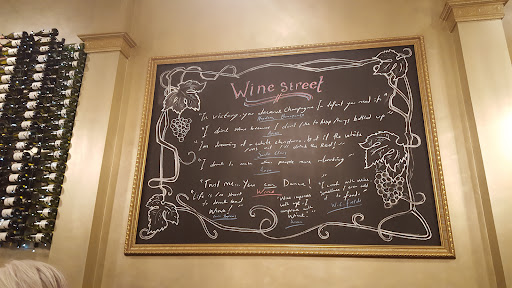 Wine street
"In victory, you deserve Champagne. In defeat you need it."
"I drink wine because I don't like to keep things bottled up"
"I'm dreaming of a white christmas, but if the white
runs out I'll drink the Red!"
"I drink to make other people more interesting"
Trust me... You can Dance!
Wine
"Life is too short
to drink bad
Wine!"
"Wine improves
with age. I
improve with
Wine!"
"I cook with Wine
sometimes I even add
it to food"
W.C. Fields